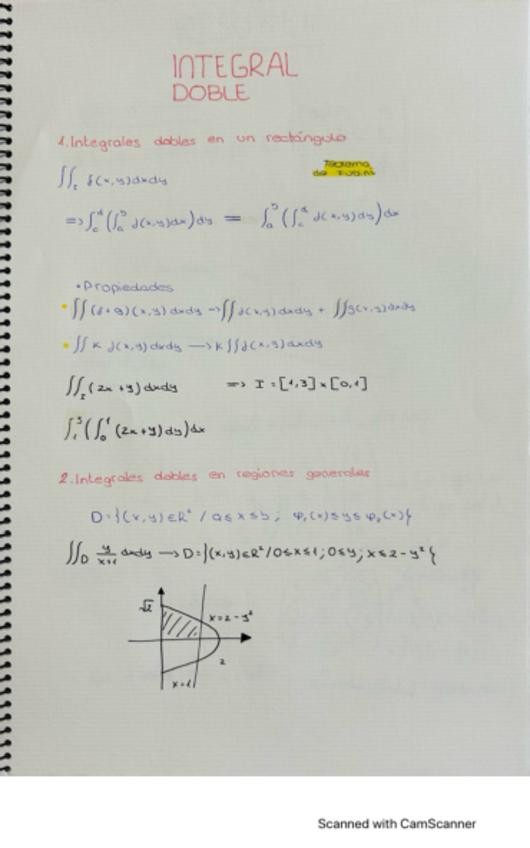 INTEGRAL
DOBLE
1. Integrales dobles en un rectángulo
Teorema
de Fubini
∬_I f(x,y)dxdy
=> ∫_c^d (∫_a^b f(x,y)dx)dy = ∫_a^b (∫_c^d f(x,y)dy)dx
• Propiedades
• ∬(f+g)(x,y)dxdy → ∬f(x,y)dxdy + ∬g(x,y)dxdy
• ∬ K f(x,y)dxdy → K ∬f(x,y)dxdy
∬_I (2x+y)dxdy => I = [1,3] x [0,1]
∫_1^3 (∫_0^1 (2x+y)dy)dx
2. Integrales dobles en regiones generales
D = {(x,y)∈R² / a≤x≤b; φ₁(x)≤y≤φ₂(x)}
∬_D y/(x+1) dxdy → D = {(x,y)∈R² / 0≤x≤1; 0≤y; x≤2-y²}
√2
x=2-y²
2
x=1
Scanned with CamScanner